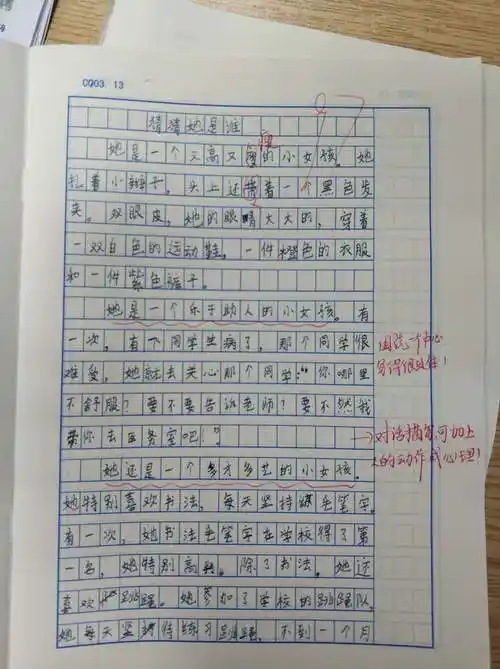 CQ03. 13
猜猜她是谁
她是一个又高又瘦的小女孩。她
扎着小辫子。头上还带着一个黑色发
夹。双眼皮，她的眼睛大大的，穿着
一双白色的运动鞋。一件橙色的衣服
和一件紫色裤子。
她是一个乐于助人的小女孩。有
一次，有一个同学生病了，那个同学很
难受，她就去关心那个同学："你哪里
不舒服？要不要告诉老师？要不然我
带你去医务室吧！"
她还是一个多才多艺的小女孩。
她特别喜欢书法，每天坚持练毛笔字。
有一次，她书法毛笔字在学校得了第
一名，她特别高兴。除了书法。她还
喜欢跳绳。她参加了学校的跳绳队，
她每天坚持练习跳绳，不到一个月
围绕一个中心
写得很具体！
对话描写可加上
人的动作或心理！